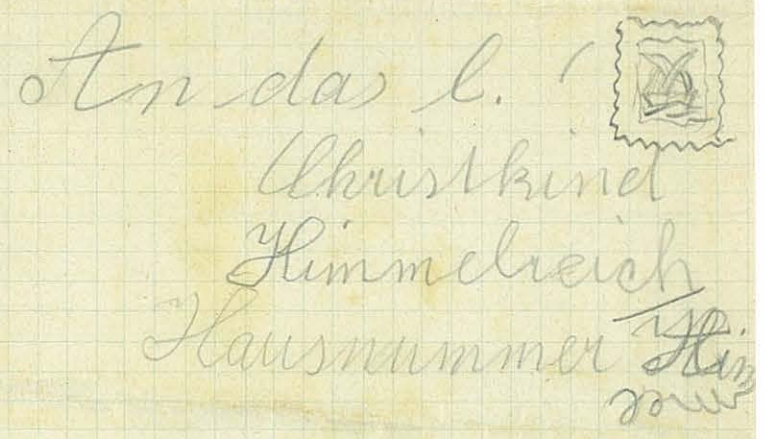 An das l.
Christkind
Himmelreich
Hausnummer